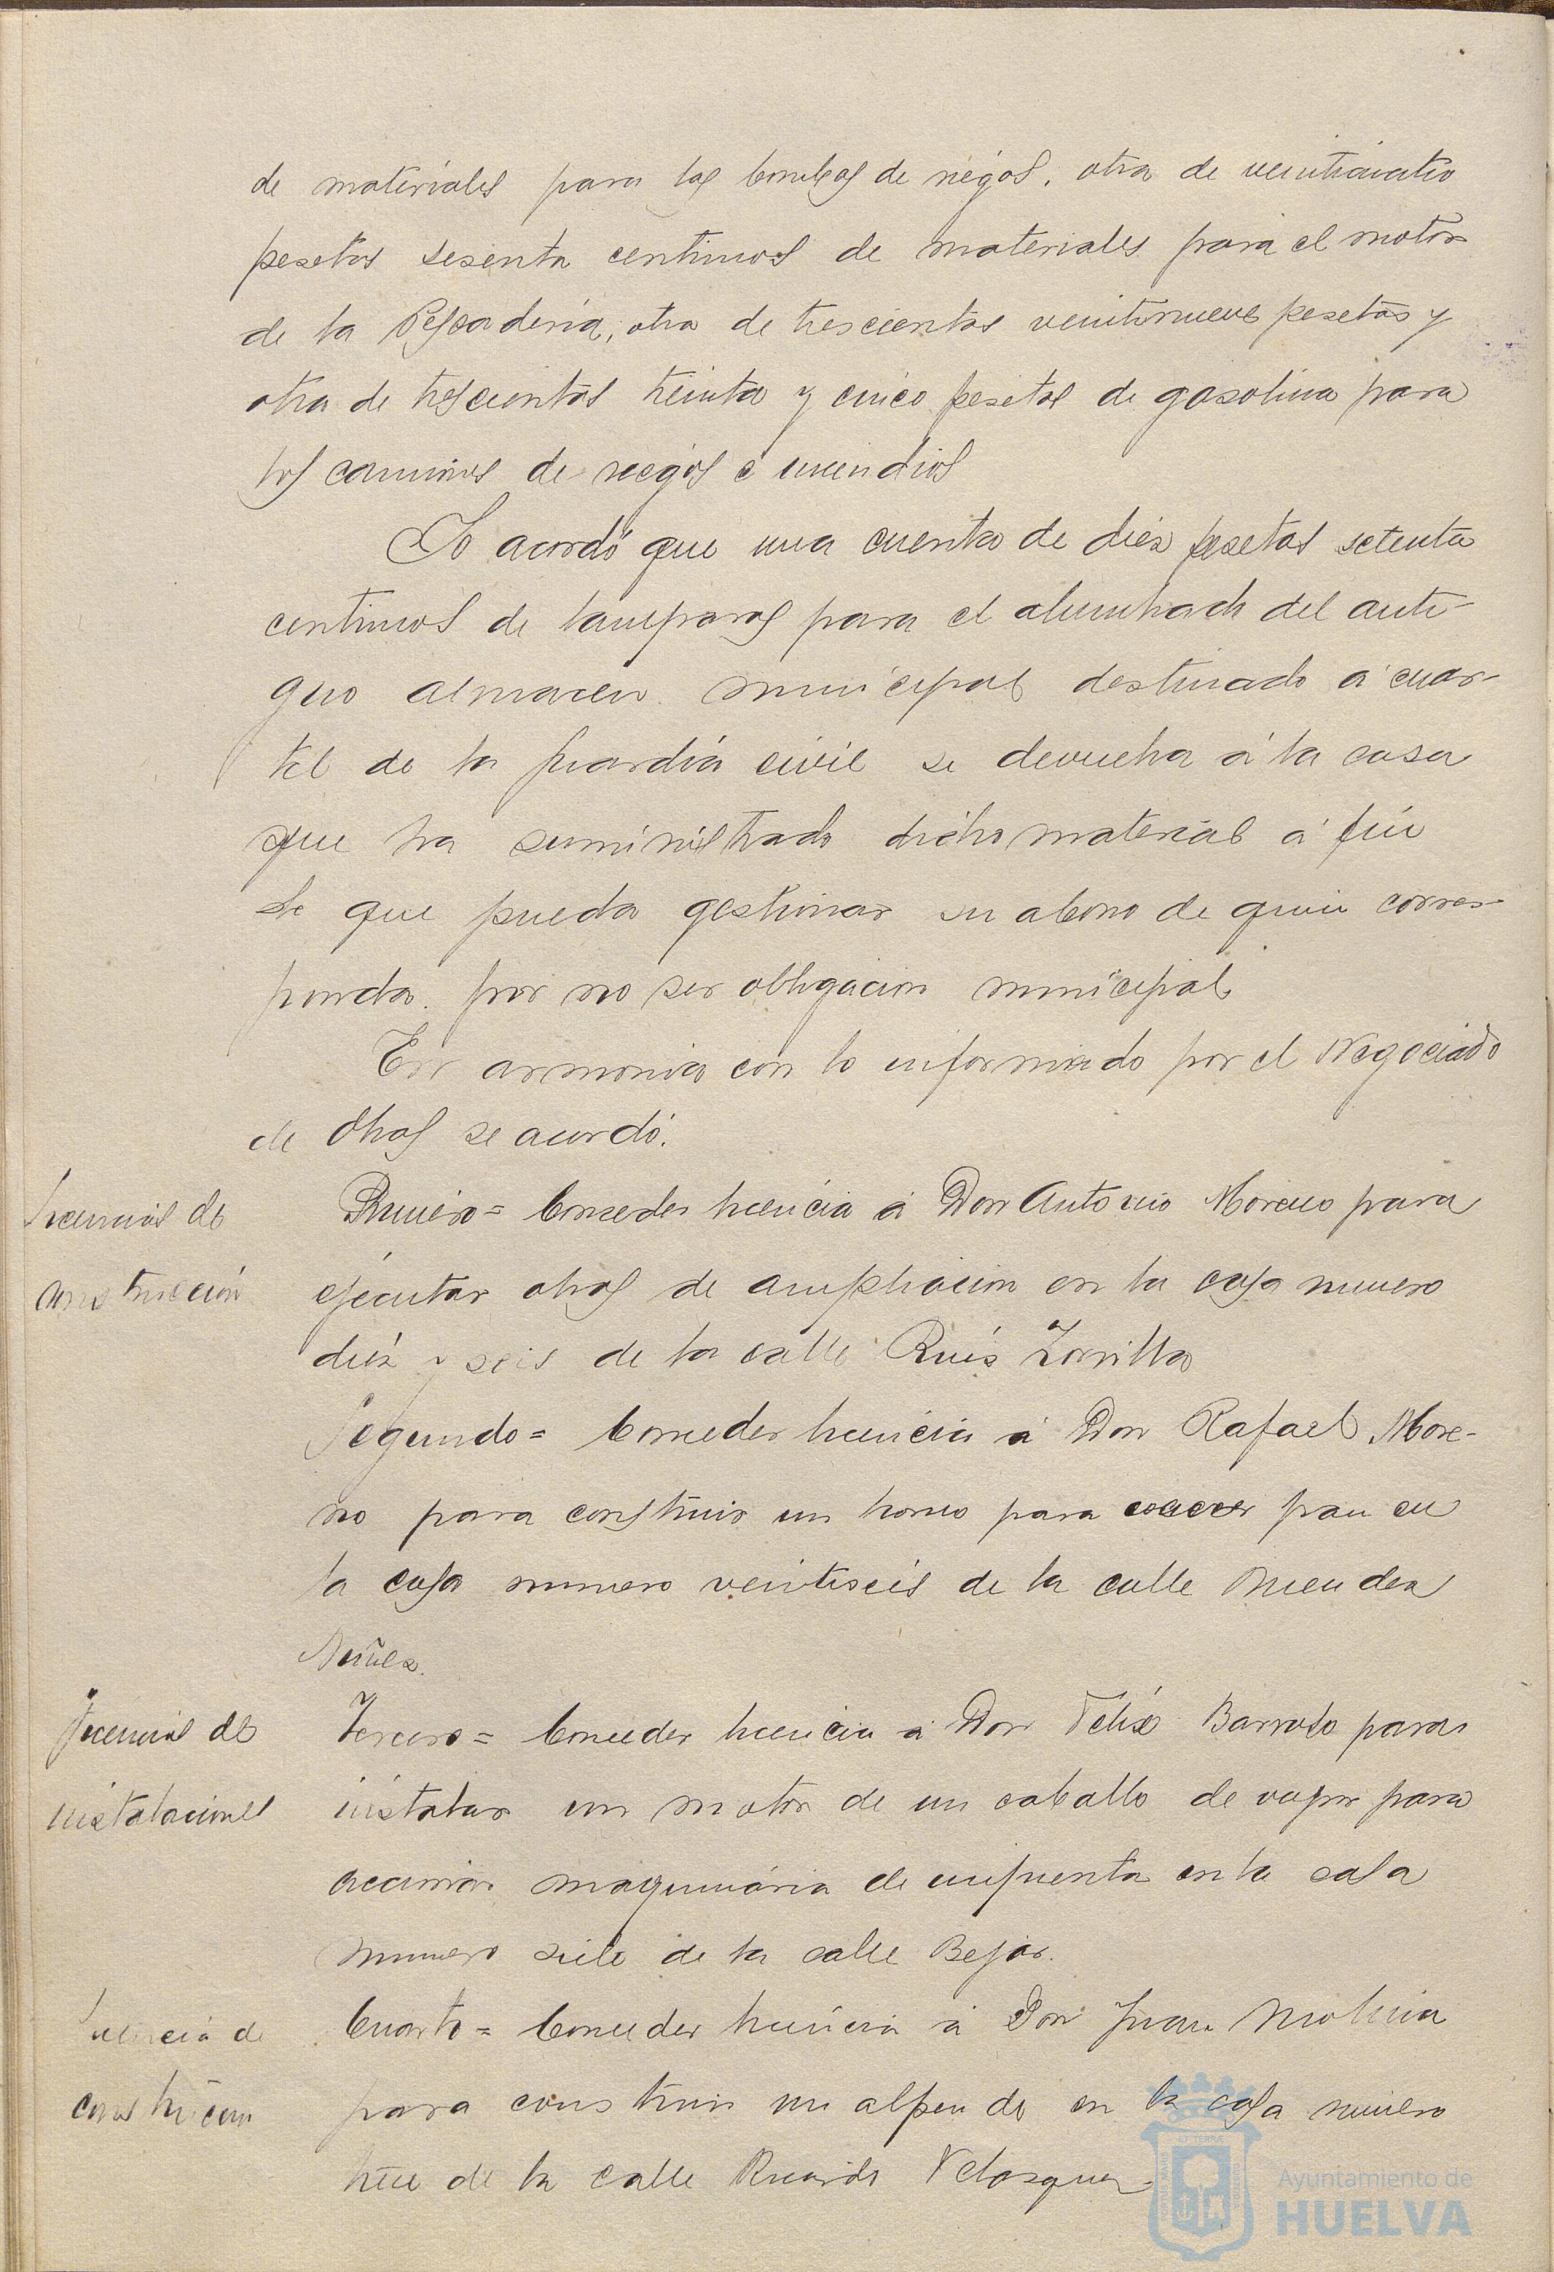 de materiales para las bombas de riegos, otra de veinticuatro
pesetas sesenta centimos de materiales para el motor
de la Pescaderia, otra de trescientas veintinueve pesetas y
otra de trescientas treinta y cinco pesetas de gasolina para
los camiones de riegos e incendios
Se acordó que una cuenta de diez pesetas setenta
centimos de lamparas para el alumbrado del anti-
guo almacen municipal destinado á cuar-
tel de la guardia civil se devuelva á la casa
que ha suministrado dicho material á fin
de que pueda gestionar su abono de quien corres-
ponda por no ser obligacion municipal
En armonia con lo informado por el Negociado
de Obras se acordó.
Licencias de
construcción
Primero= Conceder licencia á Don Antonio Moreno para
ejecutar obras de ampliacion en la casa numero
diez y seis de la calle Ruis Zorrilla
Segundo= Conceder licencia á Don Rafael More-
no para construir un horno para cocer pan en
la casa numero veintiseis de la calle Mendez
Nuñez.
Licencias de
instalaciones
Tercero= Conceder licencia á Don Felix Barroso para
instalar un motor de un caballo de vapor para
accionar maquinaria de imprenta en la casa
numero siete de la calle Bejar.
Licencia de
construccion
Cuarto= Conceder licencia á Don Juan Molina
para construir un alpende en la casa numero
trece de la calle Ricardo Velazquez
Ayuntamiento de
HUELVA